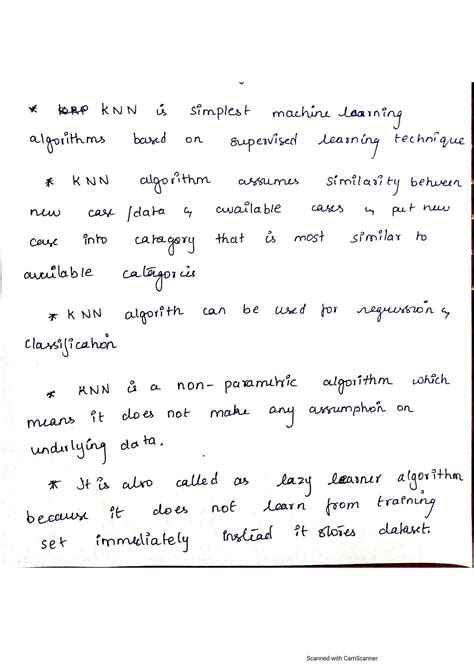 * KNN is simplest machine learning
algorithms based on supervised learning technique
* KNN algorithm assumes similarity between
new case/data & available cases & put new
case into catagory that is most similar to
available catagories
* KNN algorith can be used for regression &
classification
* KNN is a non-parametric algorithm which
means it does not make any assumption on
underlying data.
* It is also called as lazy learner algorithm
because it does not learn from training
set immediately instead it stores dataset.
Scanned with CamScanner